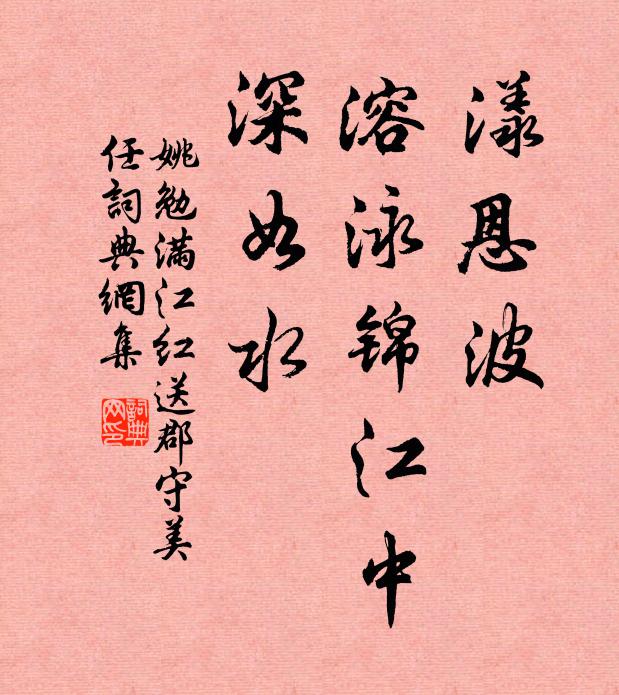 漾恩波
溶泳锦江中
深如水
姚勉满江红送郡守美
任詞典網集
詞典网印